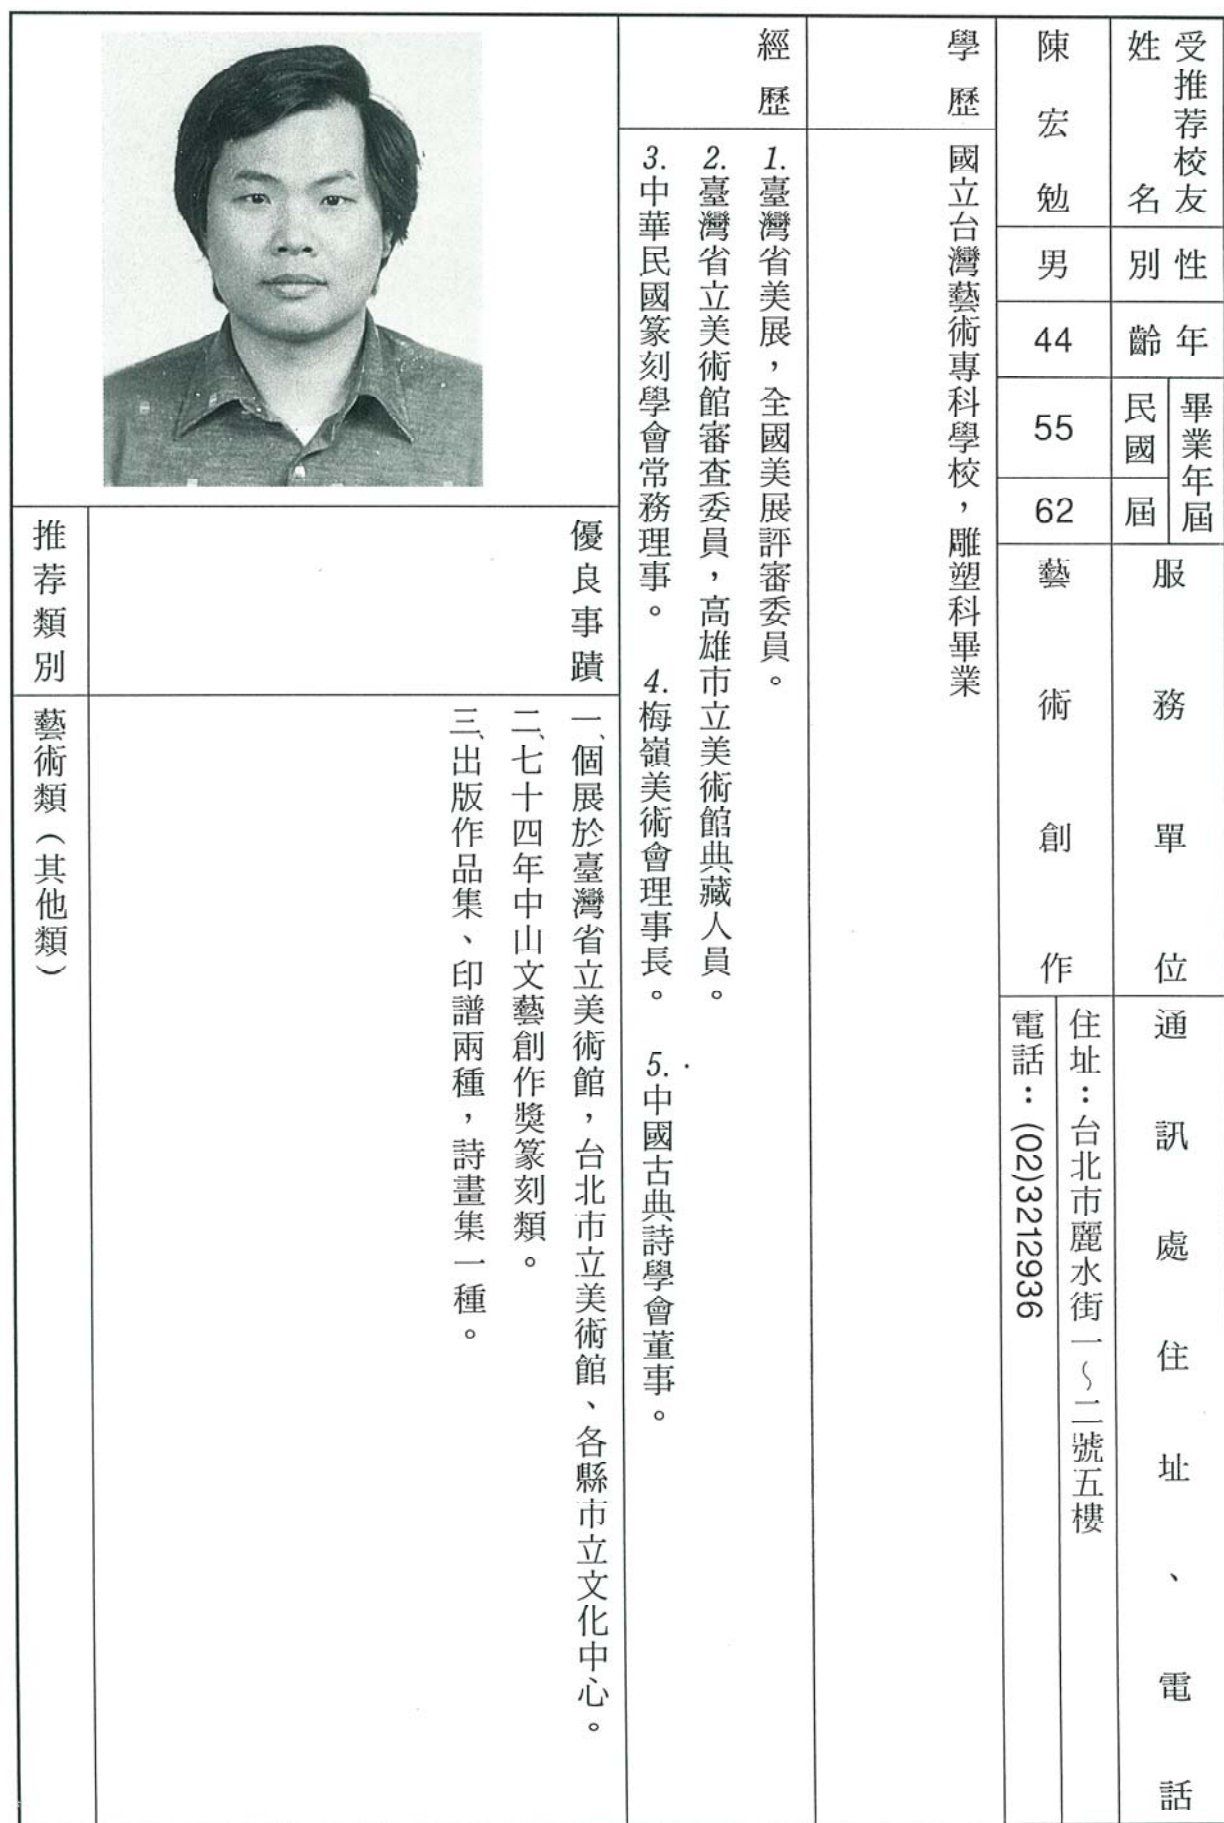 受推荐校友
姓名
性別
年齡
畢業年屆
民國
屆
服務單位
通訊處住址、電話
陳宏勉
男
44
55
62
藝術創作
住址：台北市麗水街一～二號五樓
電話：(02)3212936
學歷
國立台灣藝術專科學校，雕塑科畢業
經歷
1.臺灣省美展，全國美展評審委員。
2.臺灣省立美術館審查委員，高雄市立美術館典藏人員。
3.中華民國篆刻學會常務理事。 4.梅嶺美術會理事長。 5.中國古典詩學會董事。
優良事蹟
一、個展於臺灣省立美術館，台北市立美術館、各縣市立文化中心。
二、七十四年中山文藝創作獎篆刻類。
三、出版作品集、印譜兩種，詩畫集一種。
推荐類別
藝術類（其他類）